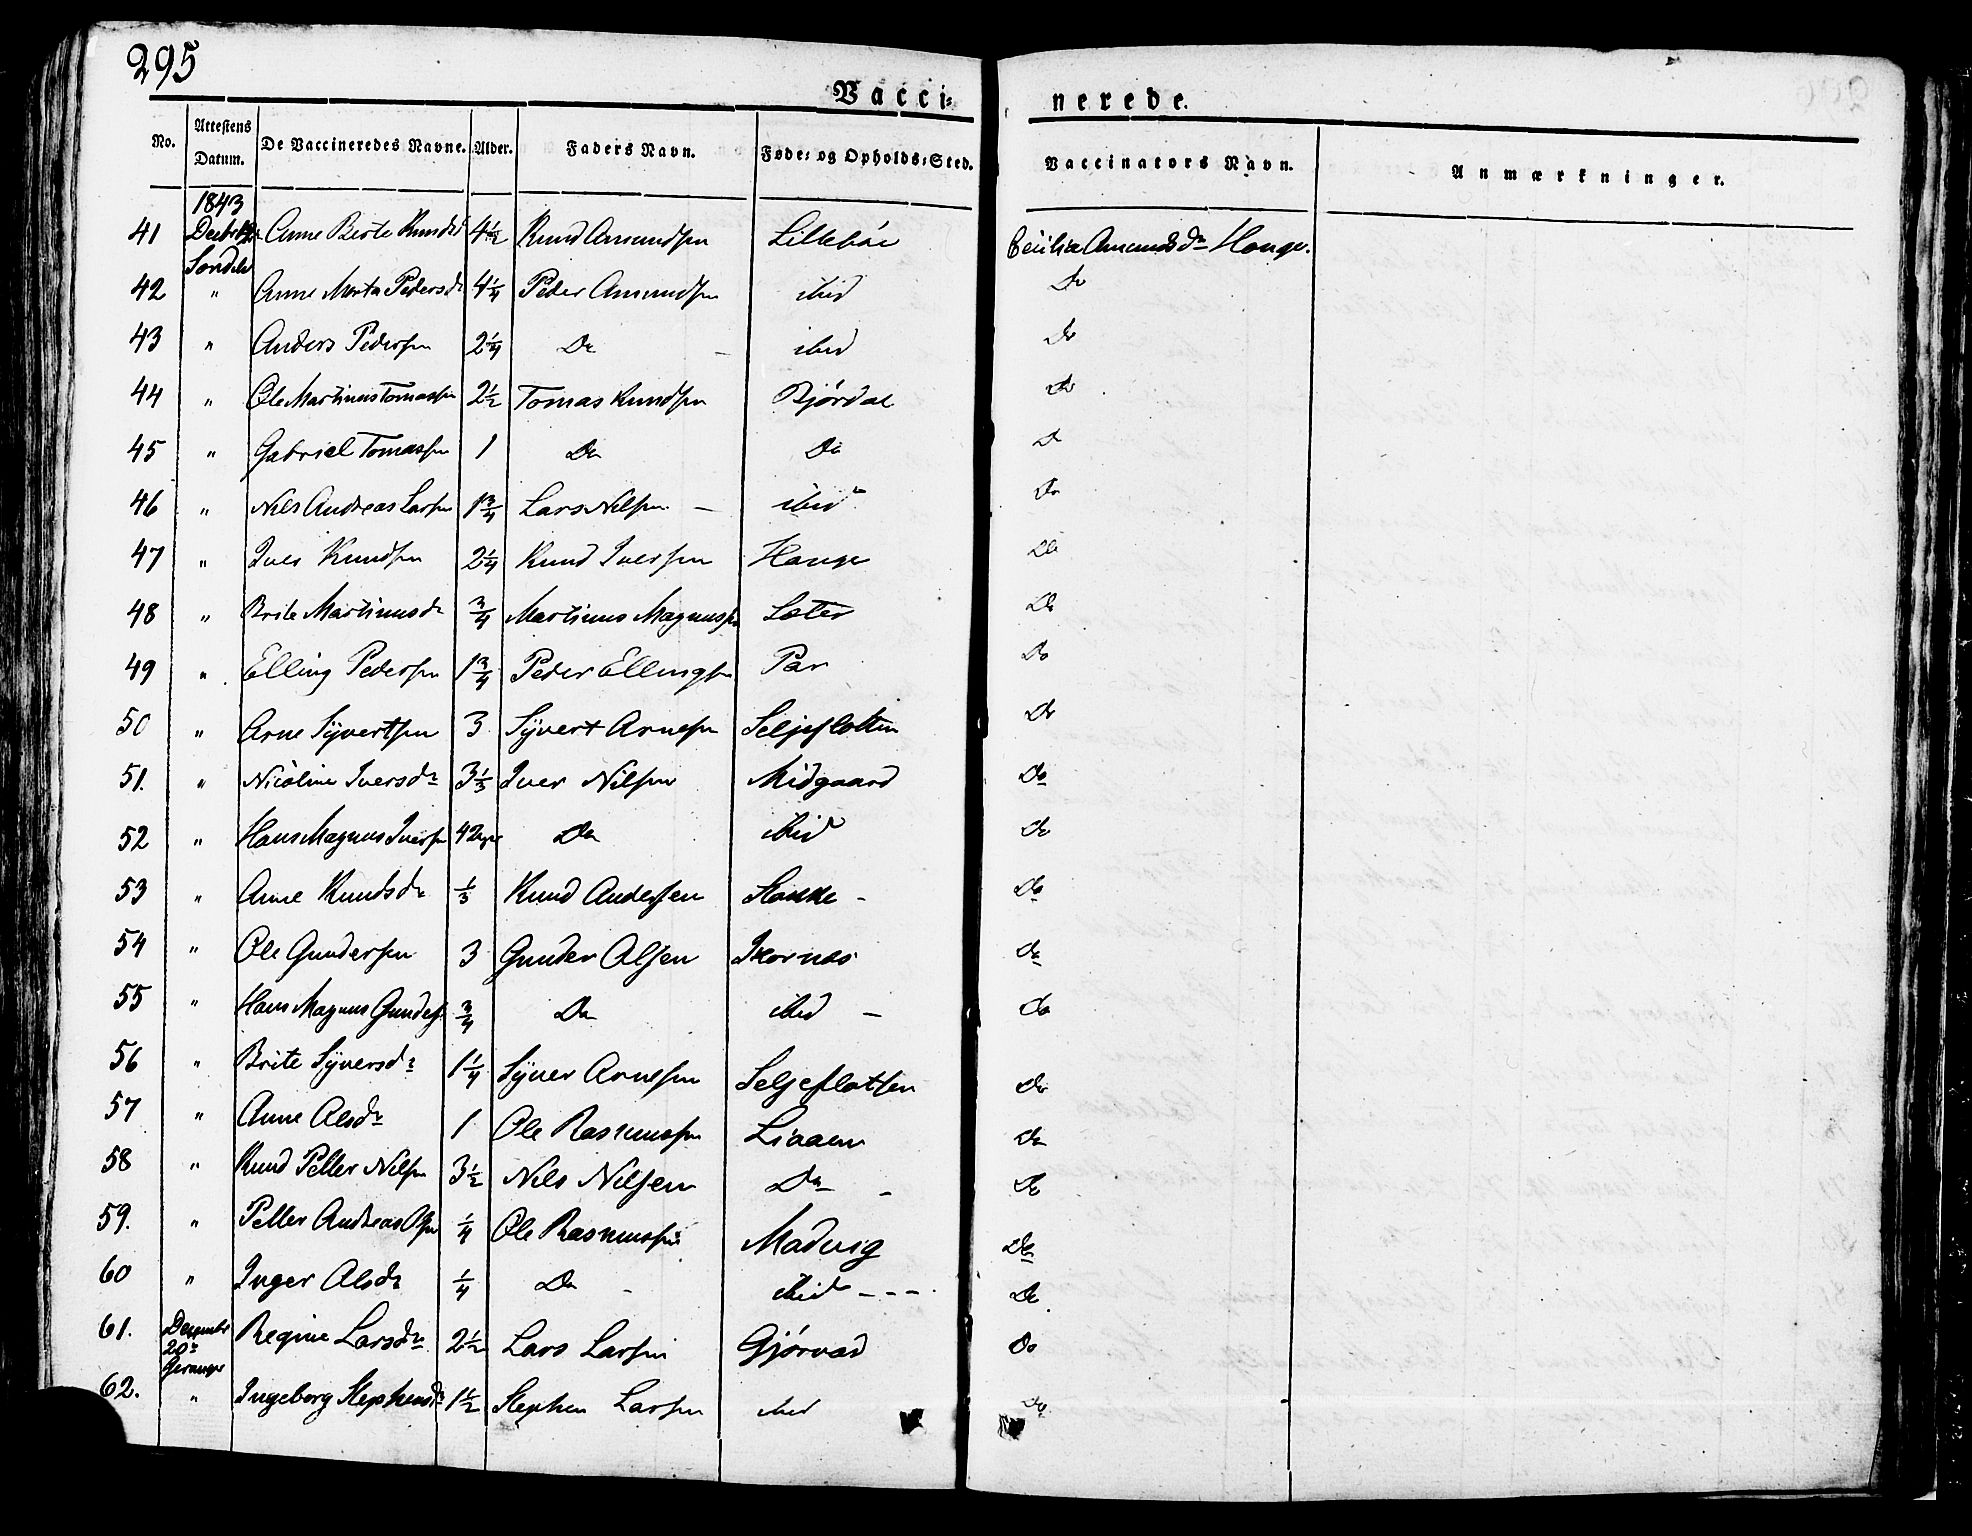 295
Vacci- nerede.
No. Attestens Datum. De Vaccineredes Navne. Alder. Faders Navn. Føde- og Opholds-Sted. Vaccinators Navn. Anmærkninger.
1843
41 Anne Berte Knudsd 4½ Knud Amundsen Lillebøe Cecilia Amundsdr Hauge.
42 " Anne Marta Pedersd 4¼ Peder Amundsen ibid Do
43 " Anders Pedersen 2¼ Do – ibid Do
44 " Ole Martinus Tomassen 2½ Tomas Knudsen Bjørdal Do
45 " Gabriel Tomassen 1 Do Do Do
46 " Nils Andreas Larsen 1¾ Lars Nilsen – ibid Do
47 " Iver Knudsen 2¼ Knud Iversen Hauge Do
48 " Brite Martinusdr ¾ Martinus Magnussen Sæter Do
49 " Elling Pedersen 1¾ Peder Ellingsen Par Do
50 " Arne Syvertsen 3 Syvert Arnesen Seljeflotten Do
51. " Nicoline Iversdr 3⅓ Iver Nilsen Midgaard Do
52 " Hans Magnus Iversen Do ibid Do
53 " Anne Knudsdr ⅓ Knud Andersen – Do
54 " Ole Gundersen 3 Gunder Olsen Ikornæs Do
55 " Hans Magnus ¾ Do ibid – Do
56 " Brite Syversdr 1¼ Syver Arnesen Seljeflotten Do
57 " Anne Olsdr 1 Ole Rasmussen Liaaen Do
58 " Knud Petter Nilsen 3½ Nils Nilsen Do – Do
59. " Petter Andreas Olsen ¼ Ole Rasmussen Madvig Do
60 " Inger Olsdr ¼ Do – ibid – – – Do
61. December 20de Regine Larsdr 2½ Lars Larsen Gjørvad Do
Geranger
62. " Ingeborg Stephensdr 1½ Stephen Larsen ibid Do